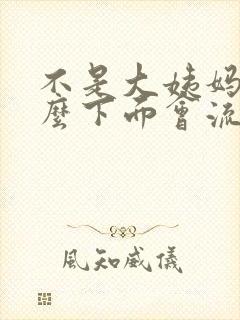 不是大姨妈
麼下面會流
風知威儀